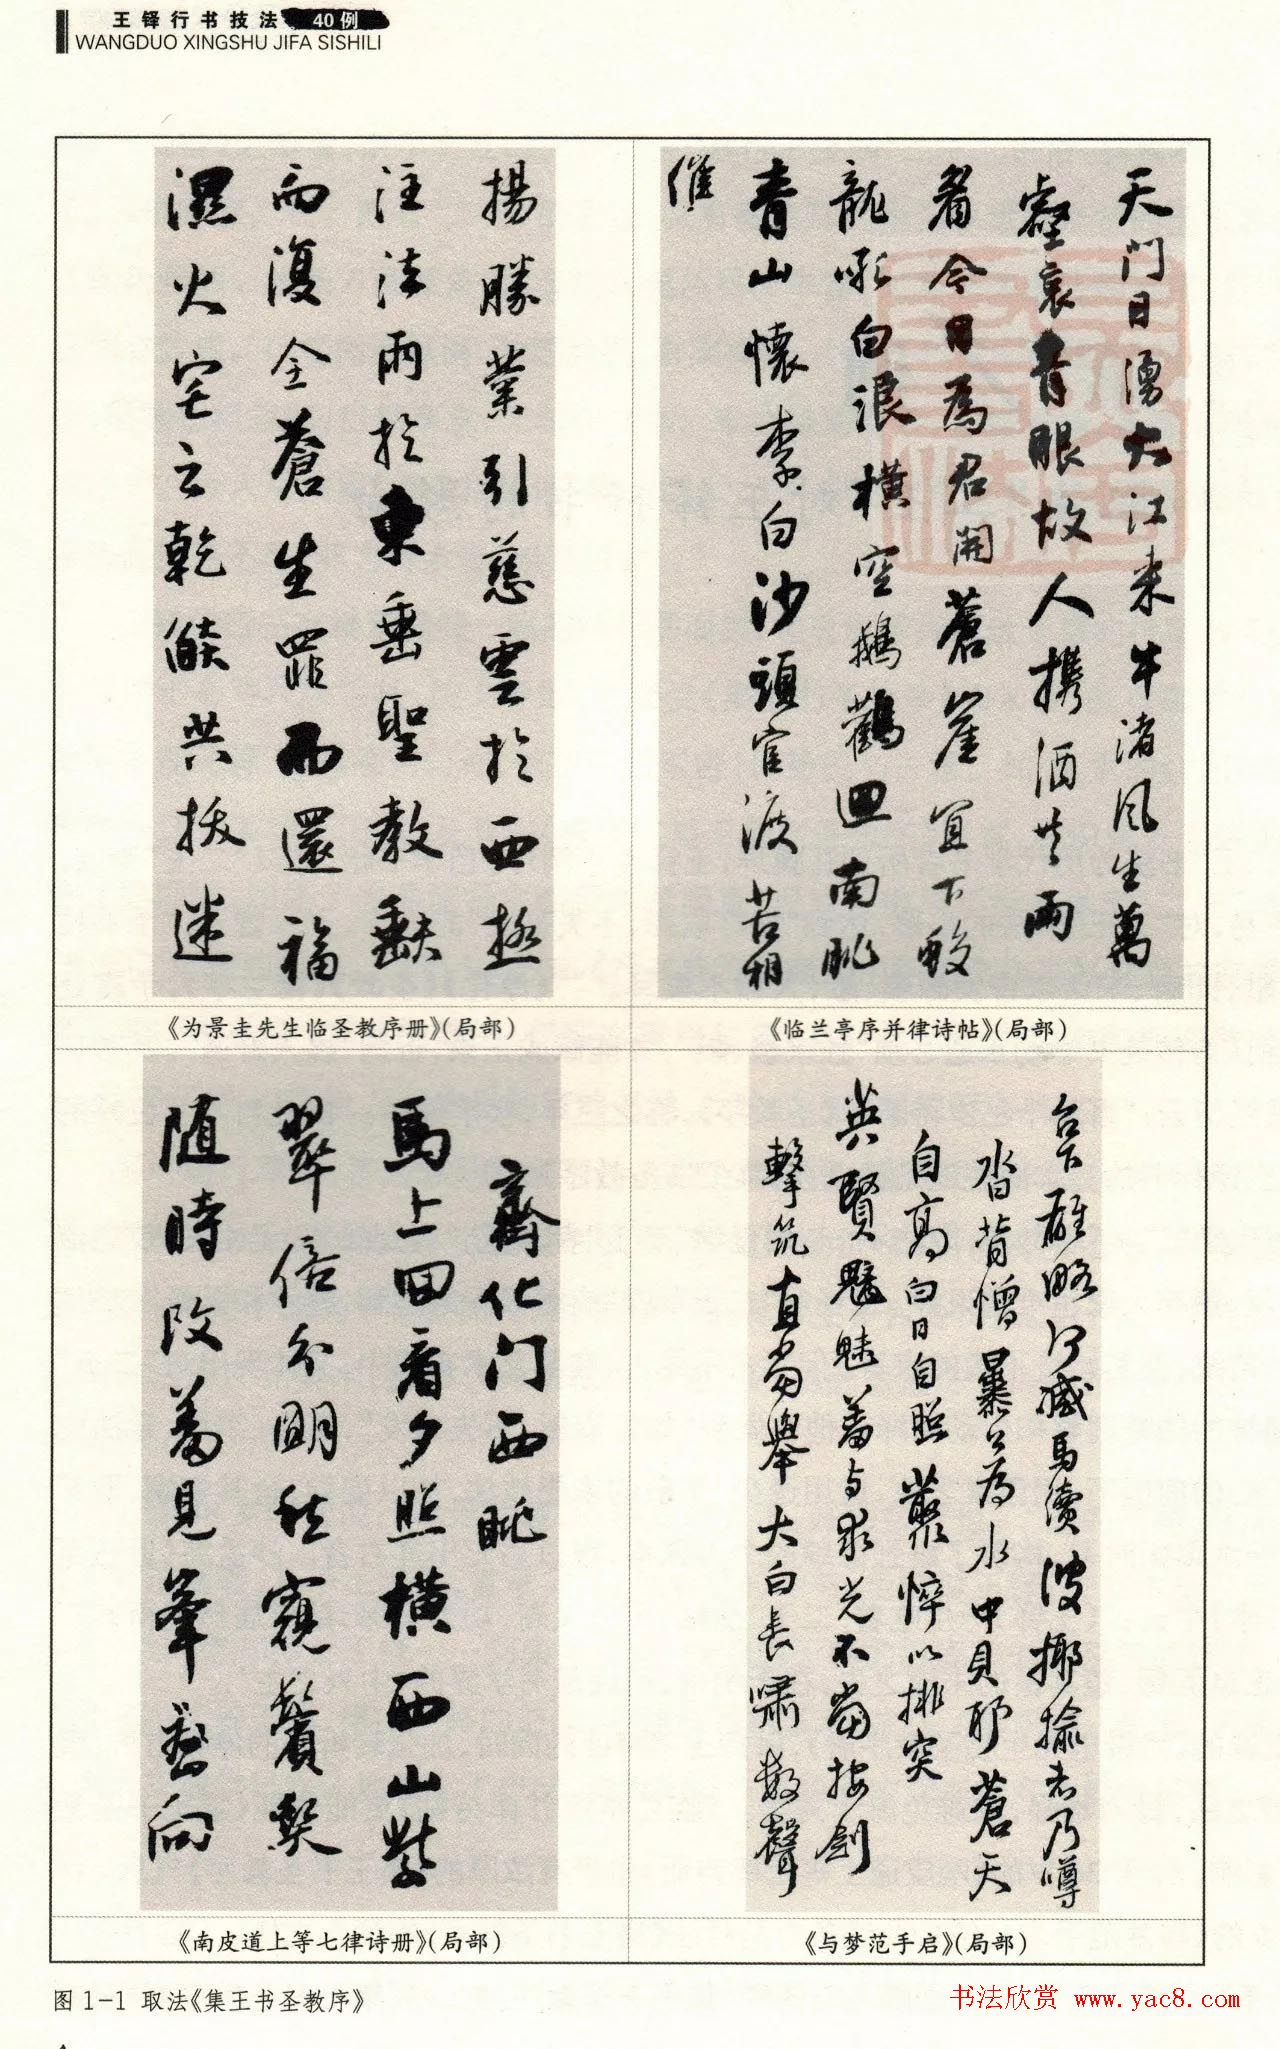 王铎行书技法 40例
WANGDUO XINGSHU JIFA SISHILI
揚勝業引慈雲於西極
注法雨於東垂聖教缺
而復全蒼生罪而還福
濕火宅之乾燄共拔迷
《为景圭先生临圣教序册》(局部)
天門日湧大江来牛渚風生萬
壑哀青眼故人携酒共兩
看今日為君開蒼崖宜下
龍吼白浪橫空鵝鸛迴南眺
青山懷李白沙頭官渡苦相
催
《临兰亭序并律诗帖》(局部)
齊化门西眺
馬上回看夕照橫西山紫
翠倍分明秋窺鬢
随時改舊見峯向
《南皮道上等七律诗册》(局部)
台下雄略何減馬續彼揶揄者乃噂
沓背憎暴公為水中貝耶蒼天
自高白日自照叢悴以排突
英賢魑魅羞与爭光不當按劍
擊筑直當舉大白長嘯數聲
《与梦范手启》(局部)
图 1-1 取法《集王书圣教序》
书法欣赏 www.yac8.com